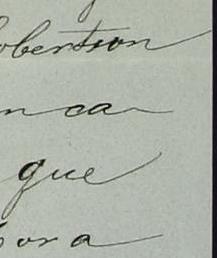 obertson
n ca
que
ora